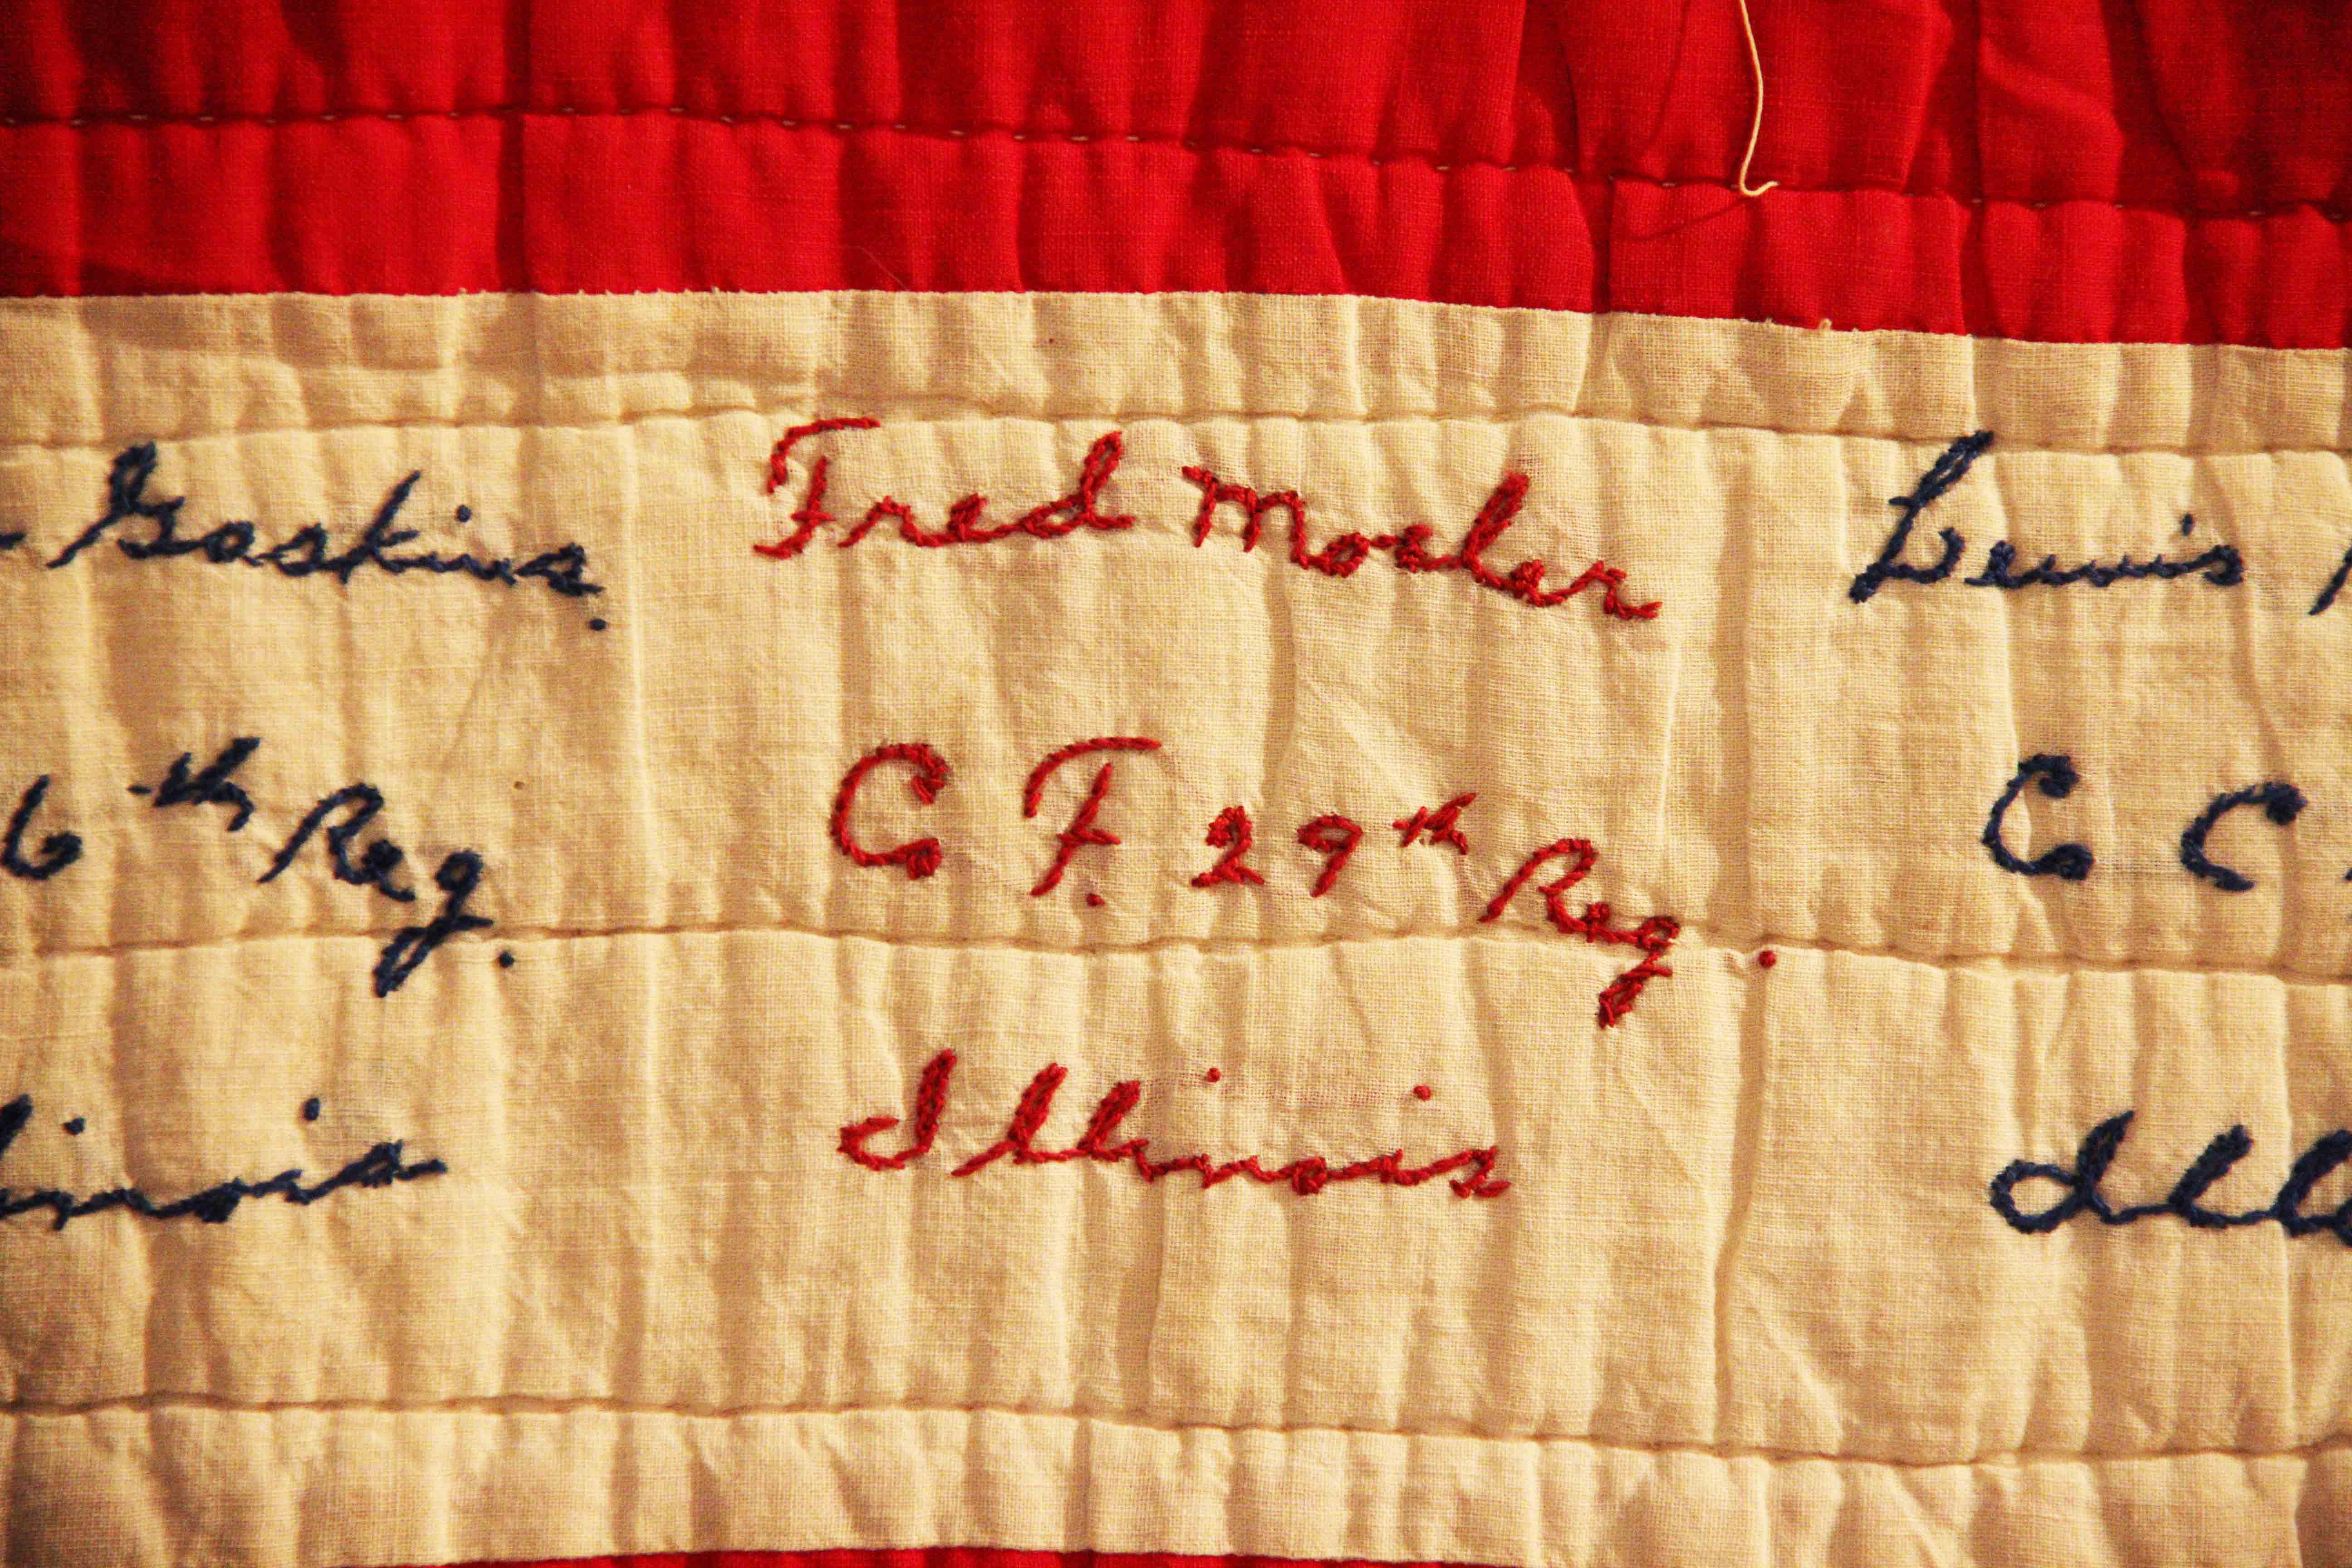 Gaskins.
6th Reg.
Fred Moslar
C F. 29th Reg.
Illinois
Lewis
C C